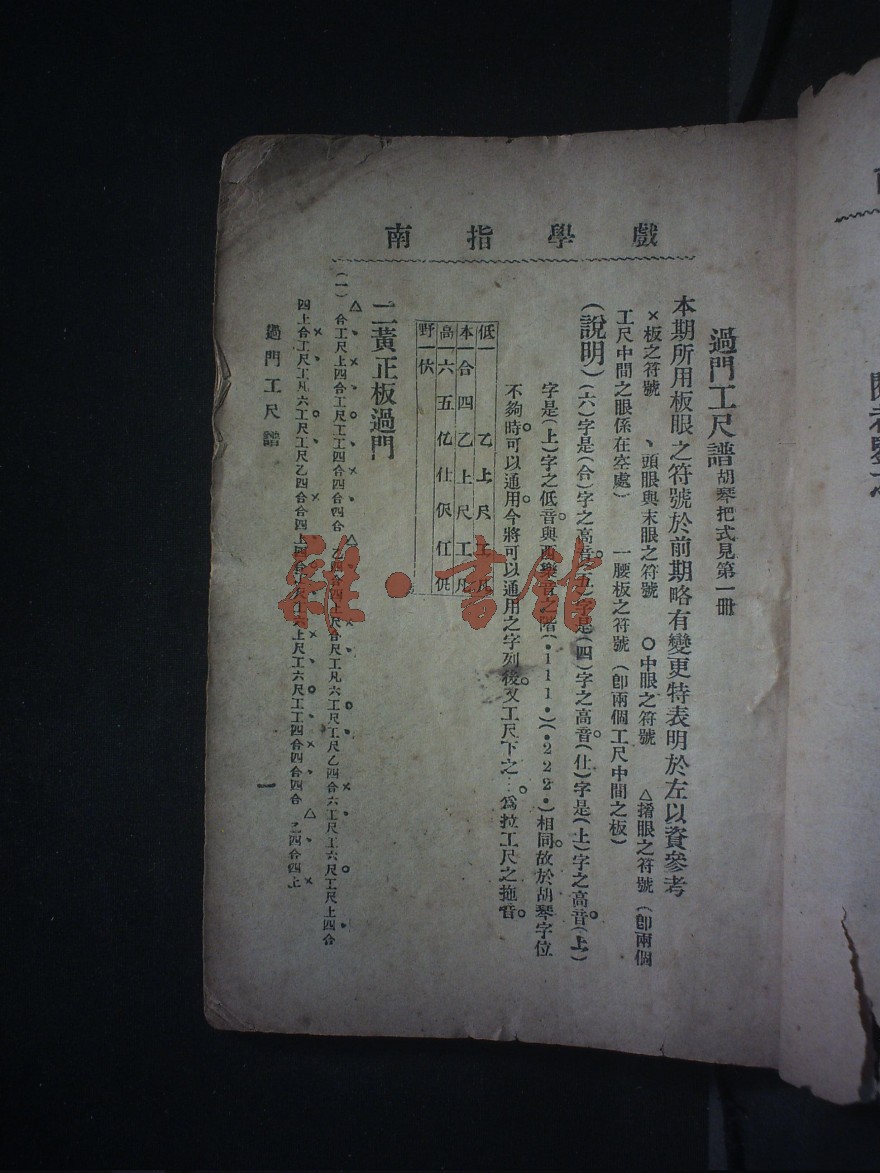 戲學指南
過門工尺譜 胡琴把式見第一冊
本期所用板眼之符號於前期略有變更特表明於左以資參考
×板之符號 、頭眼與末眼之符號 〇中眼之符號 △揹眼之符號（卽兩個
工尺中間之眼係在空處） 一腰板之符號（卽兩個工尺中間之板）
（說明）（六）字是（合）字之高音。（五）字是（四）字之高音。（仕）字是（上）字之高音。（上）
字是（上）字之低音。與西樂音之階（•111•）（•222•）相同。故於胡琴字位
不夠時。可以通用。今將可以通用之字列後。又工尺下之…。爲拉工尺之拖音。
低一 乙上尺工凡
本一合四乙上尺工凡
高一六五亿仕伬仜
野一伏
二黃正板過門
（一）合工尺上四合工尺工工四合四合 乙四合四上尺合尺工凡六工尺工尺乙四合六工尺工六尺工尺上四合
四上合工尺工凡六工尺工尺乙四合合四上四合上尺上六上尺工六尺工工四合四合 乙四合四上
過門工尺譜
一
雜·書館